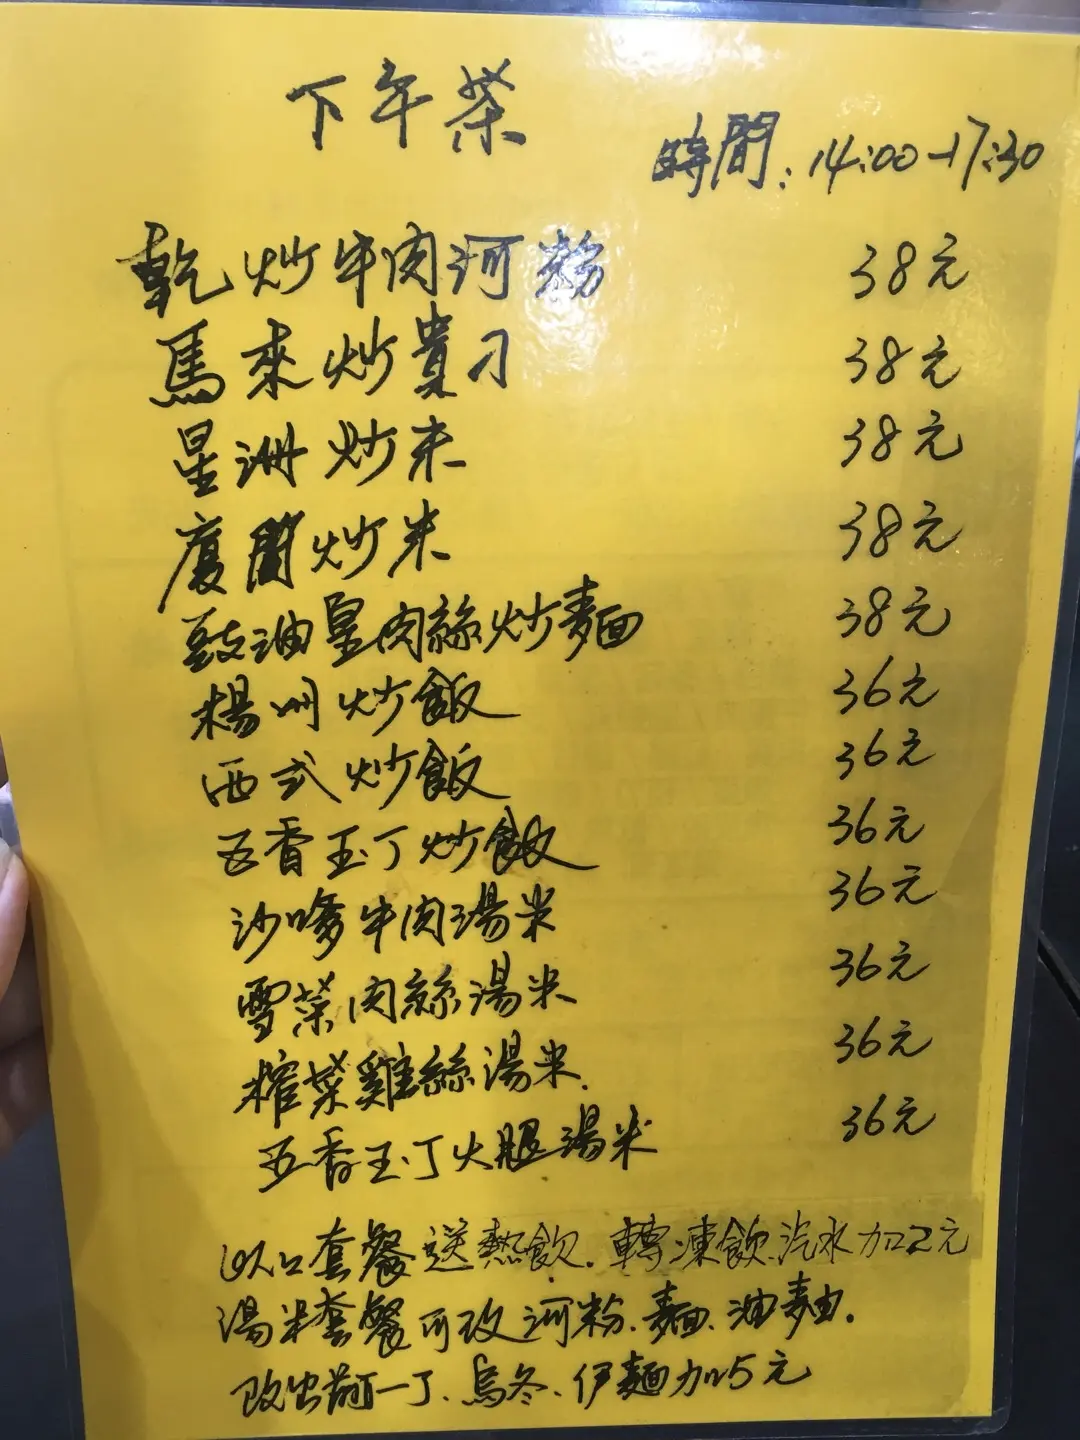 下午茶
時間:14:00-17:30
乾炒牛肉河粉 38元
馬來炒貴刁 38元
星洲炒米 38元
廈門炒米 38元
豉油皇肉絲炒麵 38元
楊州炒飯 36元
西式炒飯 36元
五香玉丁炒飯 36元
沙嗲牛肉湯米 36元
雪菜肉絲湯米 36元
榨菜雞絲湯米 36元
五香玉丁火腿湯米 36元
以上套餐送熱飲.轉凍飲汽水加2元
湯米套餐可改河粉、麵、油麵.
改出前一丁、烏冬、伊麵加5元